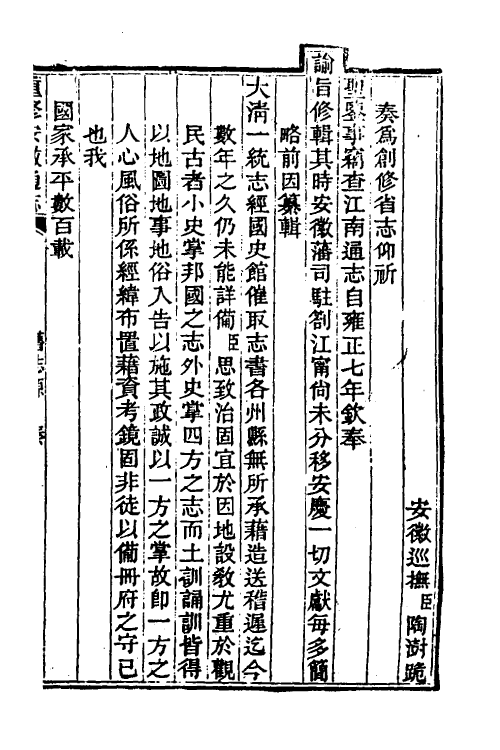 安徽巡撫臣陶澍跪
奏爲創修省志仰祈
聖鑒事竊查江南通志自雍正七年欽奉
諭旨修輯其時安徽藩司駐劄江甯尚未分移安慶一切文獻每多簡
略前因纂輯
大淸一統志經國史館催取志書各州縣無所承藉造送稽遲迄今
數年之久仍未能詳備臣思致治固宜於因地設教尤重於觀
民古者小史掌邦國之志外史掌四方之志而土訓誦訓皆得
以地圖地事地俗入告以施其政誠以一方之掌故卽一方之
人心風俗所係經緯布置藉資考鏡固非徒以備冊府之守已
也我
國家承平數百載
重修安徽通志
舊志源